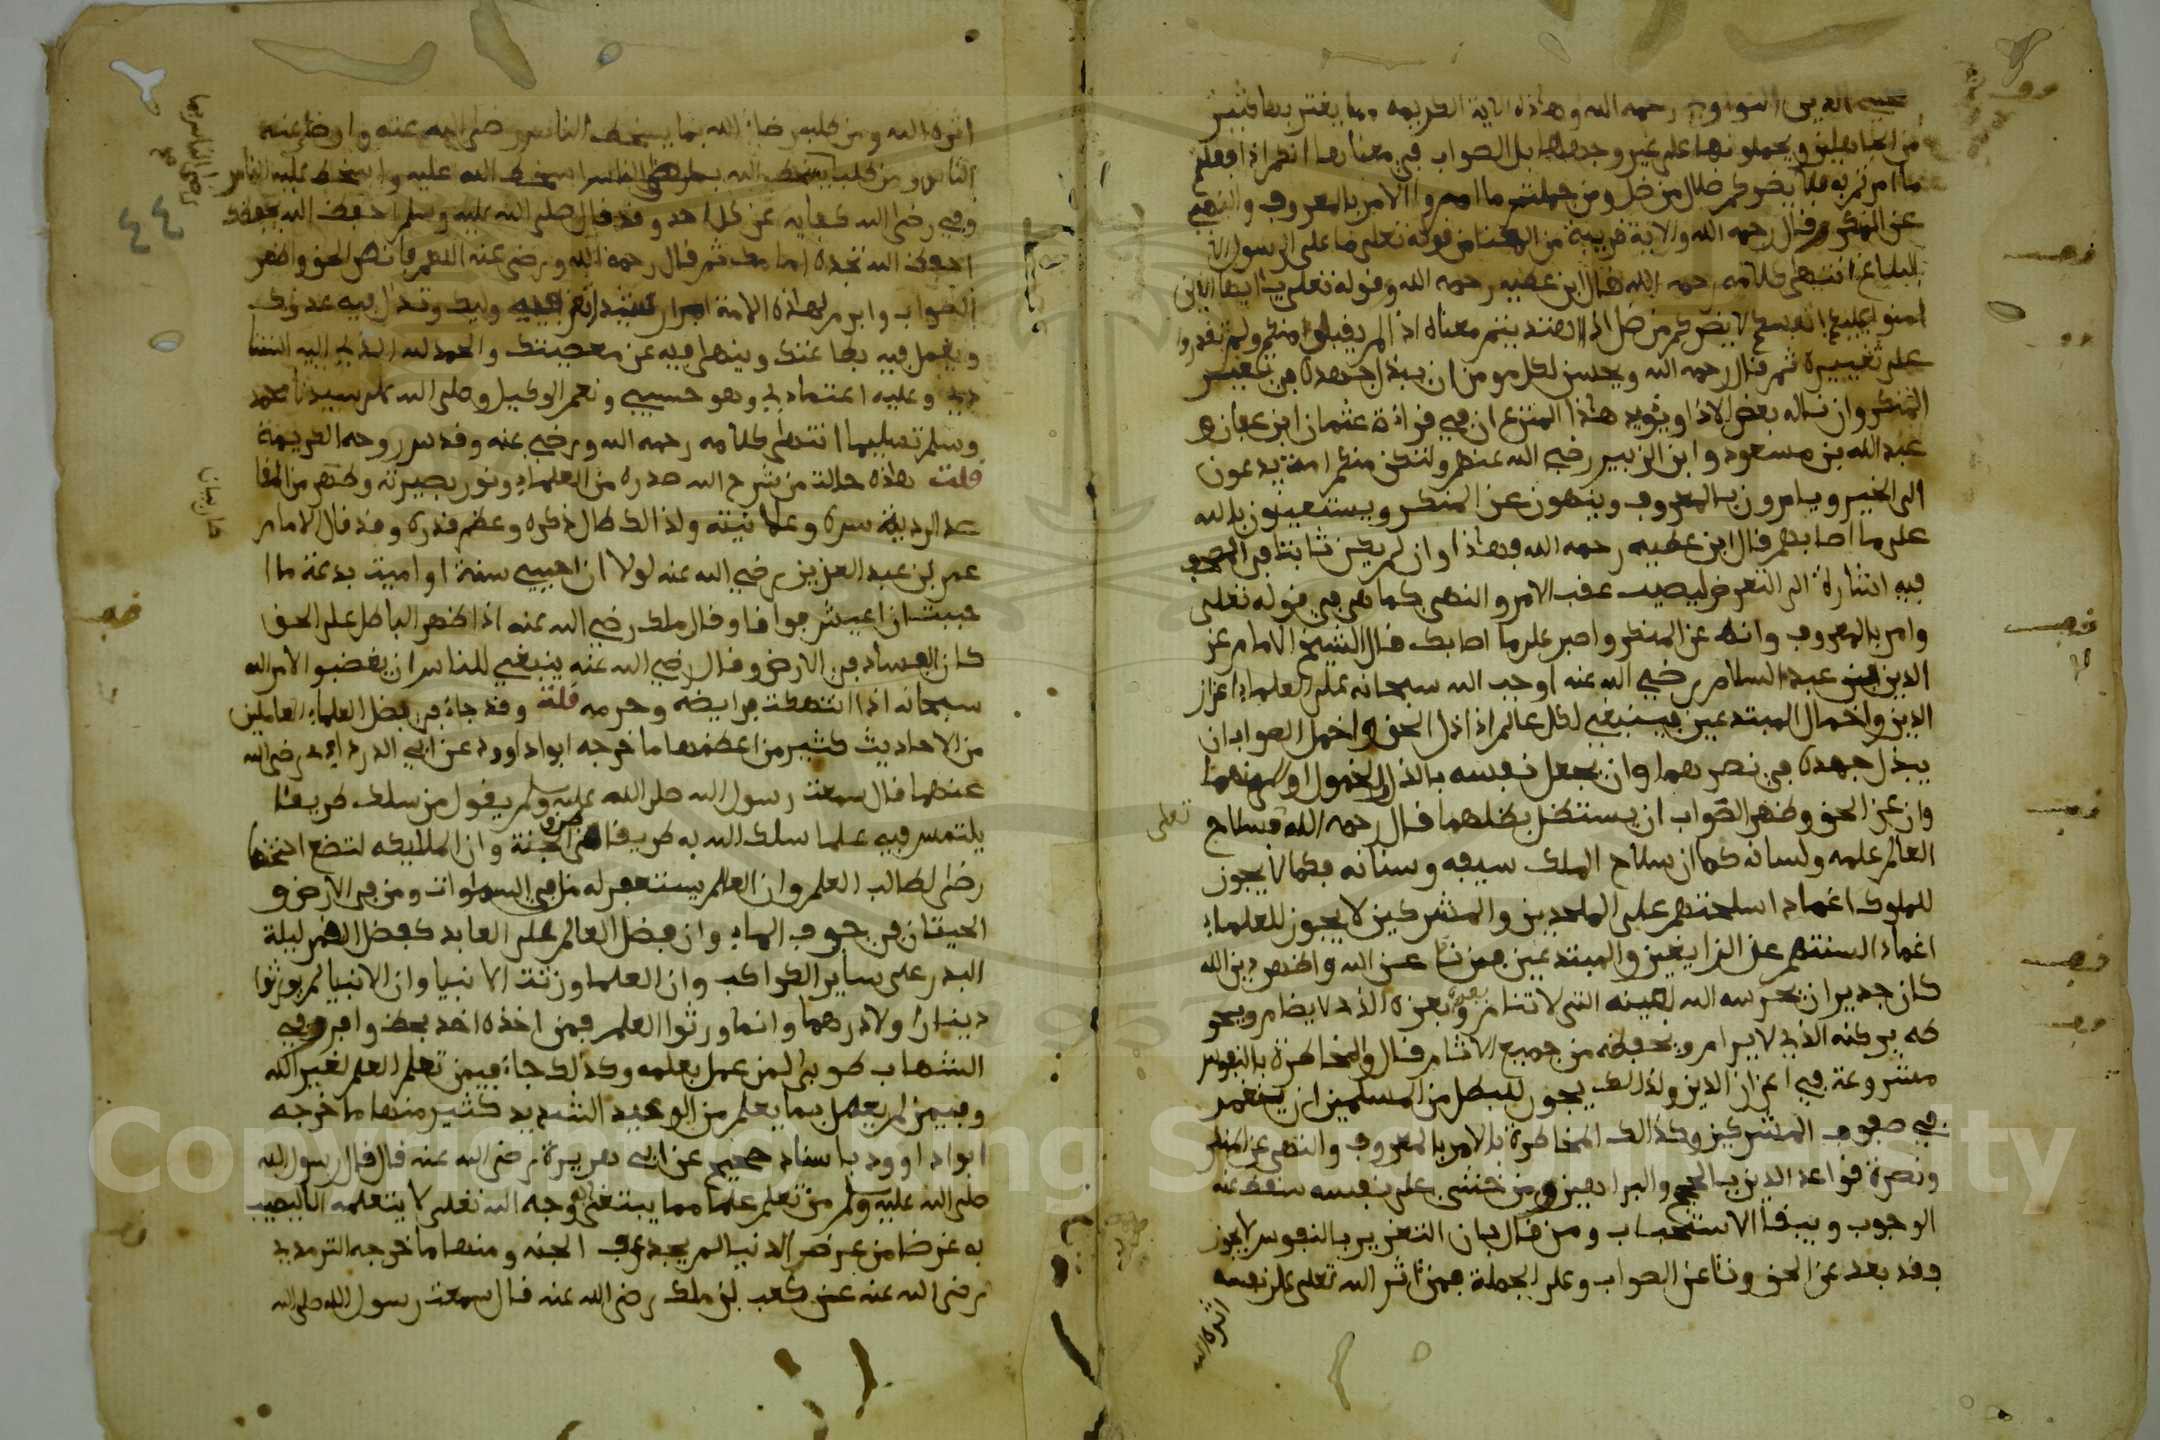 محيي الدين النواوي رحمه الله وهاذه الاية الكريمة مما يغتر بها كثير
من الجاهلين ويحملونها على غير وجهها بل الصواب في معناها انكم اذا فعلتم
ما امرتم به فلا يضركم ضلال من ضل ومن جملة ما امروا الامر بالمعروف والنهي
عن المنكر وقال رحمه الله والاية قريبة من المعنا من قوله تعلى ما على الرسول الا
البلاغ انتهى كلامه رحمه الله قال ابن عطيه رحمه الله وقوله تعلى يا ايها الذين
امنوا عليكم انفسكم لا يضركم من ضل اذا اهتديتم معناه اذا لم يقبل منكم ولم تقدروا
على تغييره ثم قال رحمه الله ويحسن لكل مومن ان يبذل جهده في تغيير
المنكر وان ناله بعض الاذا ويؤيد هاذا المنزع ان في قراءة عثمان ابن عفان و
عبد الله بن مسعود وابن الزبير رضي الله عنهم ولتكن منكم امة يدعون
الى الخير ويامرون بالمعروف وينهون عن المنكر ويستعينون بالله
على ما اصابهم قال ابن عطيه رحمه الله فهاذا وان لم يكن ثابتا في المصحف
ففيه اشارة الى التعرض ليصيب عقب الامر والنهي كما هي في قوله تعلى
وامر بالمعروف وانه عن المنكر واصبر على ما اصابك قال الشيخ الامام عز
الدين بن عبد السلام رضي الله عنه اوجب الله سبحانه على العلماء اعزاز
الدين واخمال المبتدعين فينبغي لكل عالم اذا اذل الحق واخمل الصواب ان
يبذل جهده في نصرهما وان يجعل نفسه بالذل والخمول اولى منهما
وان عز الحق وظهر الصواب ان يستظل بظلهما قال رحمه الله فسلاح
تعلى
العالم علمه ولسانه كما ان سلاح الملك سيفه وسنانه فكما لا يجوز
للملوك اغماد اسلحتهم على الملحدين والمشركين لا يجوز للعلماء
اغماد السنتهم عن الزايغين والمبتدعين فمن ناضل عن الله واظهر دين الله
كان جديرا ان يحرسه الله بعينه التي لا تنام وبعزه الذي لا يضام ويحو
طه بركنه الذي لا يرام ويحفظه من جميع الانام قال والمخاطرة بالنفوس
مشروعة في اعزاز الدين ولذلك يجوز للبطل من المسلمين ان ينغمر
في صفوف المشركين وكذالك المخاطرة بالامر بالمعروف والنهي عن المنكر
ونصرة قواعد الدين بالحجج والبراهين ومن خشي على نفسه سقط عنه
الوجوب ويبقا الاستحباب ومن قال بان التغرير بالنفوس لا يجوز
فقد بعد عن الحق ونا عن الصواب وعلى الجملة فمن اثر الله تعلى على نفسه
اثره الله
اثره الله ومن طلب رضا الله بما يسخط الناس رضي الله عنه وارضى عنه
الناس ومن طلب سخط الله برضى الناس اسخط الله عليه واسخط عليه الناس
وفي رضى الله كفاية عن كل احد وقد قال صلى الله عليه وسلم احفظ الله يحفظك
احفظ الله تجده امامك ثم قال رحمه الله ورضي عنه اللهم فانصر الحق واظهر
الصواب وابرم لهاذه الامة امرا رشيدا تعز فيه وليك وتذل فيه عدوك
ويعمل فيه بطاعتك وينهى فيه عن معصيتك والحمد لله الذي اليه استنا
دي وعليه اعتمادي وهو حسبي ونعم الوكيل وصلى الله على سيدنا محمد
وسلم تسليما انتهى كلامه رحمه الله ورضي عنه وقدس روحه الكريمة
قلت هاذه حالة من شرح الله صدره من العلماء ونور بصيرته وطهر من المقا
صد الردية سره وعلانيته ولذالك طال ذكره وعظم قدره وقد قال الامام
عمر بن عبد العزيز رضي الله عنه لولا ان احيي سنة او اميت بدعة ما ا
حببت ان اعيش فواقا وقال ملك رضي الله عنه اذا ظهر الباطل على الحق
كان الفساد في الارض وقال رضي الله عنه ينبغي للناس ان يغضبوا لامر الله
سبحانه اذا انتهكت فرايضه وحرمه قلت وقد جاء في فضل العلماء العاملين
من الاحاديث كثير من اعظمها ما خرجه ابو داوود عن ابي الدرداء رضي الله
عنهما قال سمعت رسول الله صلى الله عليه وسلم يقول من سلك طريقا
يلتمس فيه علما سلك الله به طريقا من طرق الجنة وان الملايكه لتضع اجنحتها
رضى لطالب العلم وان العالم يستغفر له من في السماوات ومن في الارض و
الحيتان في جوف الماء وان فضل العالم على العابد كفضل القمر ليلة
البدر على ساير الكواكب وان العلما ورثت الانبيا وان الانبيا لم يورثوا
دينارا ولا درهما وانما ورثوا العلم فمن اخذه اخذ بحظ وافر وفي
الشهاب طوبى لمن عمل بعلمه وكذلك جاء فيمن تعلم العلم لغير الله
وفيمن لم يعمل بما يعلم من الوعيد الشديد كثير منها ما خرجه
ابو داوود باسناد صحيح عن ابي هريرة رضي الله عنه قال قال رسول الله
صلى الله عليه وسلم من تعلم علما مما يبتغى به وجه الله تعلى لا يتعلمه الا ليصيب
به عرضا من عرض الدنيا لم يجد عرف الجنه ومنها ما خرجه الترمذي
رضي الله عنه عن كعب بن ملك رضي الله عنه قال سمعت رسول الله صلى الله
٤٤
Copyright © King Saud University
1957